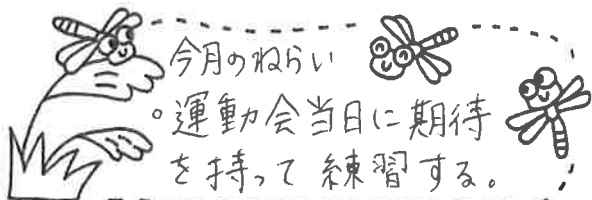 今月のねらい
。運動会当日に期待
を持って練習する。